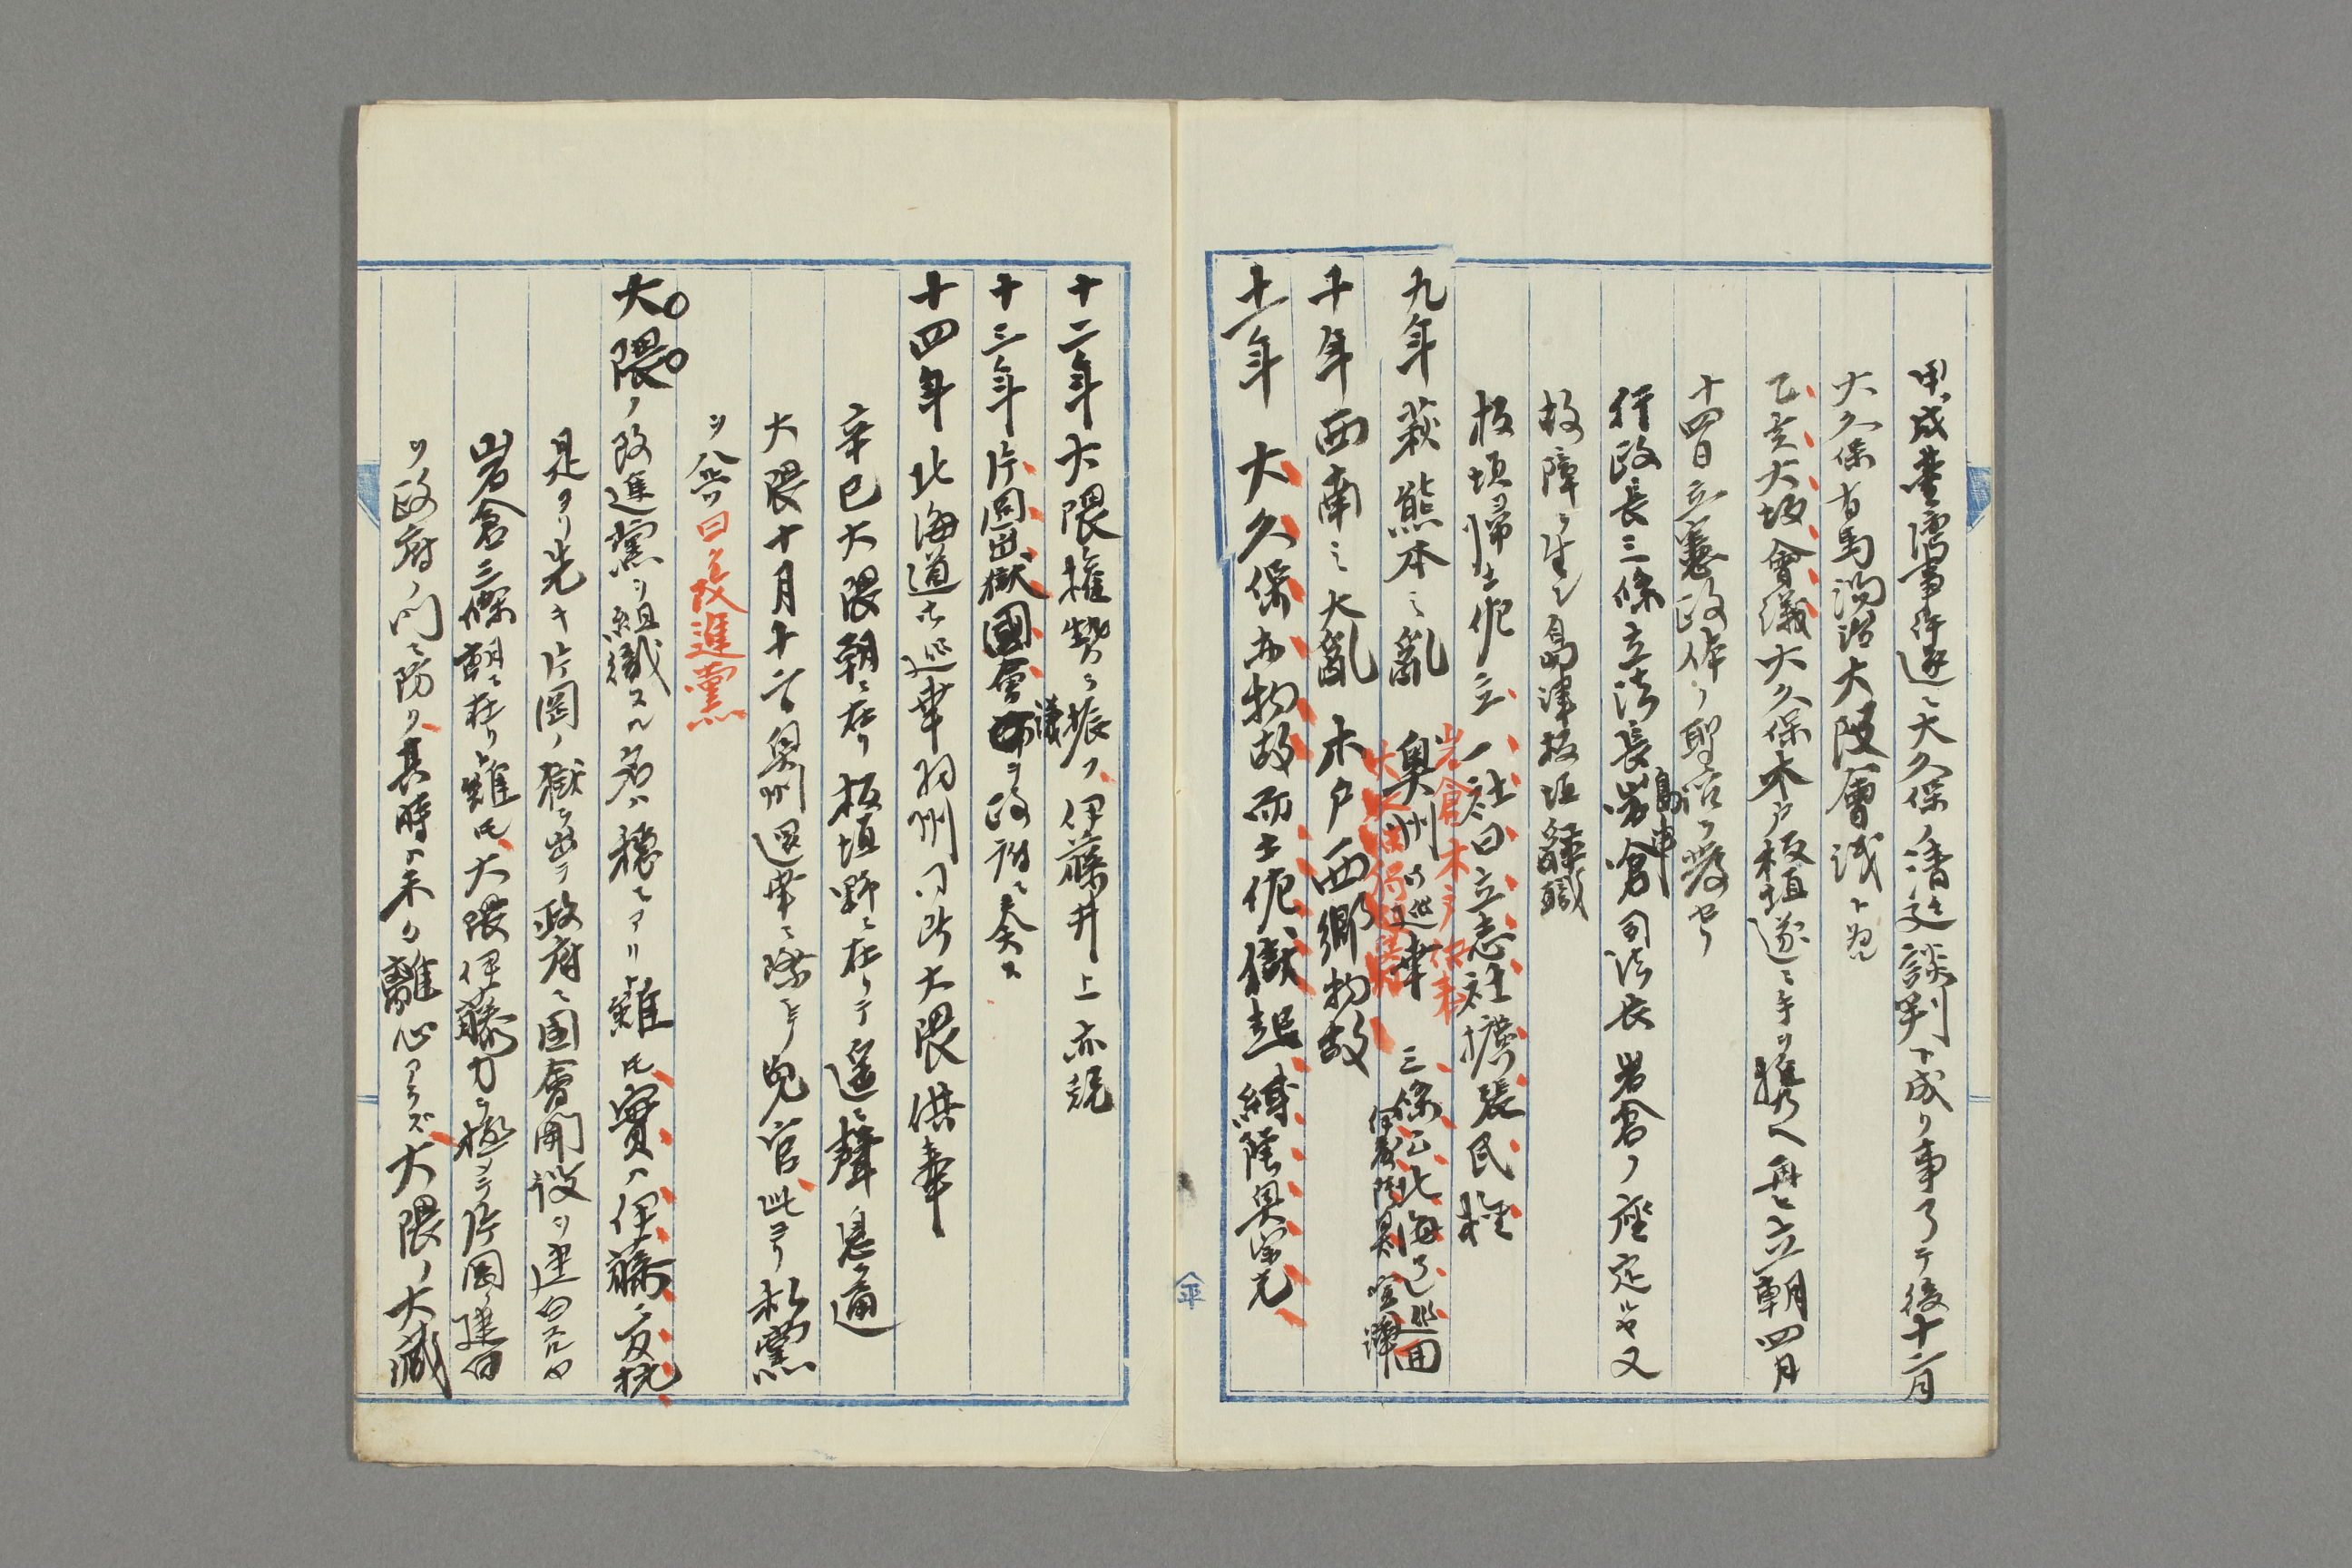 甲戌臺湾事件遂ニ大久保ノ清廷談判ト成リ事了テ後十二月
大久保有馬湯治大阪會議ト
乙亥大坂會議大久保木戸板垣遂ニ手ヲ携ヘ再ヒ立朝四月
十四日立憲政体ノ聖詔ヲ發セラ
行政長三條立法長島津司法長岩倉ノ座定ルヤ又
故障ヲ生シ島津板垣辞職
板垣帰土佐立一社曰立志社擴張民権
岩倉木戸供奉
九年萩熊本之亂 奥州御巡幸 三條已北海道巡囬
伊藤 黒 寺嶋
十年西南之大亂 木戸西郷物故
十一年 大久保亦物故而土佐獄起縛陸奥宗光
十二年大隈権勢ヲ振フ伊藤井上亦競
十三年片岡出獄國會議ヲ政府ニ奏ス
十四年北海道御巡幸羽州同断大隈供奉
辛巳大隈朝ニ在リ板垣野ニ在リテ遥ニ聲息ヲ通
大隈十月十二日奥州還幸ニ際シテ免官此ヨリ私黨
ヲ 曰ク改進黨
大隈ノ改進黨ヲ組織スル名ハ穏ニアリト雖ㇳモ實ハ伊藤ニ反抗
是ヨリ先キ片岡ノ獄ヲ出テ政府ニ国會開設ヲ建白スルヤ
岩倉三條朝ニ在リト雖ㇳモ大隈伊藤力ヲ極メテ片岡ノ建白
ヲ政府ノ門ニ防ク其時ハ未タ離心アラズ大隈ノ大蔵